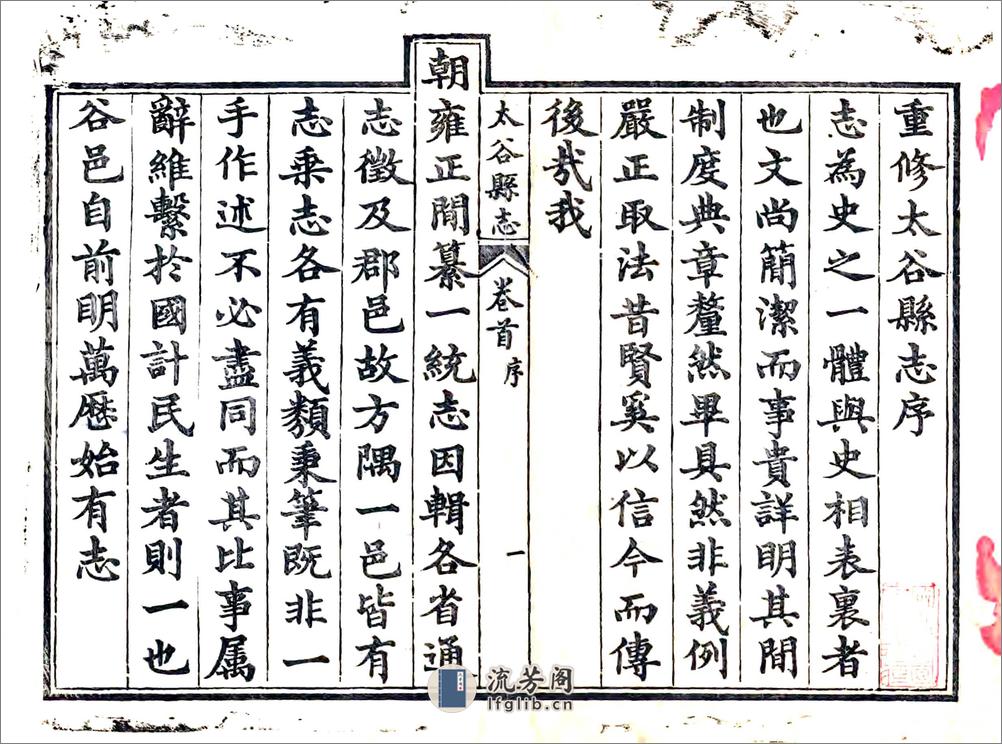 重修太谷縣志序
志為史之一體與史相表裏者
也文尚簡潔而事貴詳明其間
制度典章釐然畢具然非義例
嚴正取法昔賢奚以信今而傳
後哉我
太谷縣志 卷首 序 一
朝雍正間纂一統志因輯各省通
志徵及郡邑故方隅一邑皆有
志乘志各有義類秉筆既非一
手作述不必盡同而其比事属
辭維繫於國計民生者則一也
谷邑自前明萬歷始有志
流芳阁
lfglib.cn